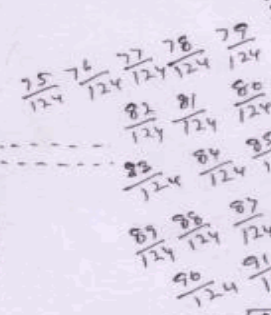 75/124 76/124 77/124 78/124 79/124
82/124 81/124 80/124
83/124 84/124 85/1
89/124 88/124 87/124
90/124 91/1